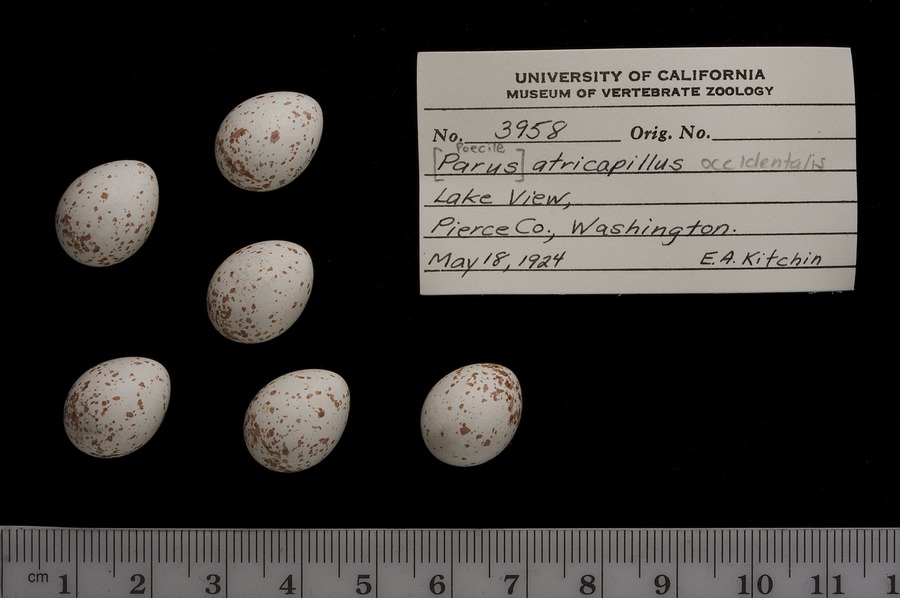 UNIVERSITY OF CALIFORNIA
MUSEUM OF VERTEBRATE ZOOLOGY
No. 3958 Orig. No.
Poecile
[Parus] atricapillus occidentalis
Lake View,
Pierce Co., Washington.
May 18, 1924 E.A. Kitchin
cm 1 2 3 4 5 6 7 8 9 10 11 1